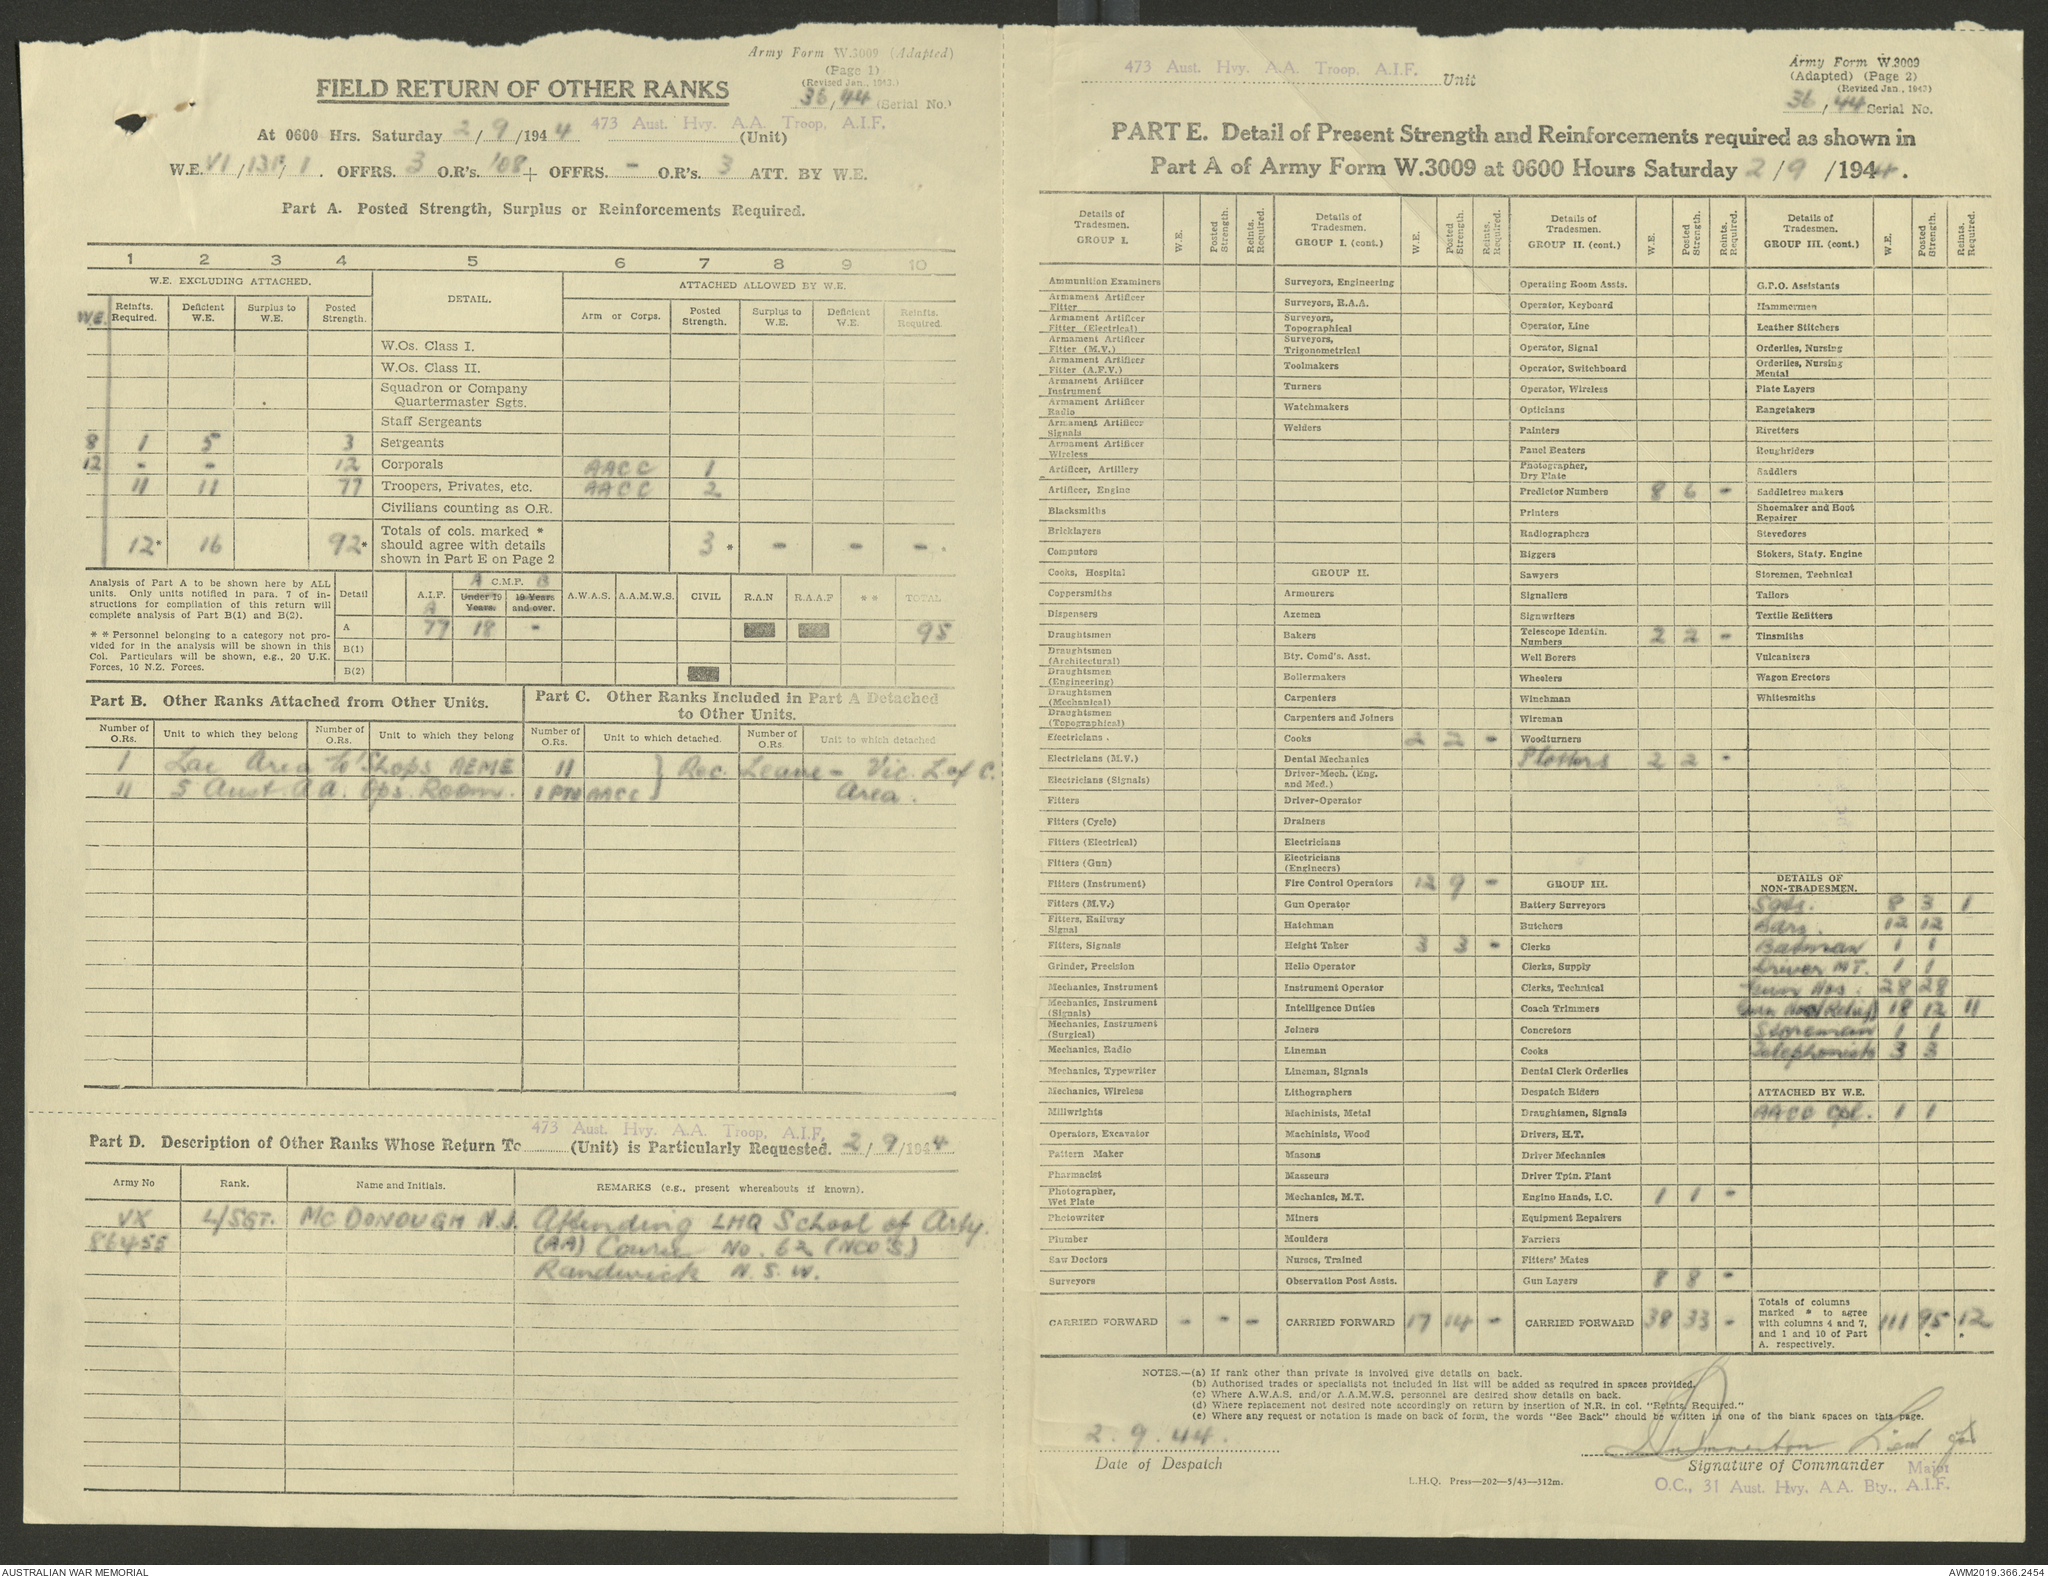 Army Form W.3009 (Adapted)
(Page 1)
(Revised Jan., 1943.)
FIELD RETURN OF OTHER RANKS
36/44 (Serial No.)
At 0600 Hrs. Saturday 2/9/1944 473 Aust. Hvy. A.A. Troop, A.I.F. (Unit)
W.E. VI/ /1. OFFRS. 3 O.R's. 108 + OFFRS. - O.R's. 3 ATT. BY W.E.
Part A. Posted Strength, Surplus or Reinforcements Required.
1 2 3 4 5 6 7 8 9 10
W.E. EXCLUDING ATTACHED. DETAIL. ATTACHED ALLOWED BY W.E.
WE. Reinfts. Required. Deficient W.E. Surplus to W.E. Posted Strength. Arm or Corps. Posted Strength. Surplus to W.E. Deficient W.E. Reinfts. Required.
W.Os. Class I.
W.Os. Class II.
Squadron or Company
Quartermaster Sgts.
Staff Sergeants
8 1 5 3 Sergeants
12 - - 12 Corporals AACC 1
11 11 77 Troopers, Privates, etc. AACC 2
Civilians counting as O.R.
12* 16 92* Totals of cols. marked * should agree with details shown in Part E on Page 2 3* - - -
Analysis of Part A to be shown here by ALL
units. Only units notified in para. 7 of in-
structions for compilation of this return will
complete analysis of Part B(1) and B(2).
** Personnel belonging to a category not pro-
vided for in the analysis will be shown in this
Col. Particulars will be shown, e.g., 20 U.K.
Forces, 10 N.Z. Forces.
Detail A.I.F. A A C.M.F. B Under 19 Years. 19 Years and over. A.W.A.S. A.A.M.W.S. CIVIL R.A.N R.A.A.F ** TOTAL
A 77 18 - 95
B(1)
B(2)
Part B. Other Ranks Attached from Other Units.
Number of O.Rs. Unit to which they belong Number of O.Rs. Unit to which they belong
1 Lae Area W'Shops AEME
11 5 Aust. AA. Ops. Room.
Part C. Other Ranks Included in Part A Detached
to Other Units.
Number of O.Rs. Unit to which detached. Number of O.Rs. Unit to which detached
11 } Rec. Leave - Vic. L of C.
1 PTE AACC } Area.
Part D. Description of Other Ranks Whose Return To 473 Aust. Hvy. A.A. Troop, A.I.F. (Unit) is Particularly Requested. 2/9/1944
Army No Rank. Name and Initials. REMARKS (e.g., present whereabouts if known).
VX L/SGT. MC DONOUGH N.J. Attending LHQ School of Arty.
86455 (AA) Course No. 62 (NCO'S)
Randwick N.S.W.
473 Aust. Hvy. A.A. Troop, A.I.F. Unit
Army Form W.3009
(Adapted) (Page 2)
(Revised Jan., 1943)
36/44 Serial No.
PART E. Detail of Present Strength and Reinforcements required as shown in
Part A of Army Form W.3009 at 0600 Hours Saturday 2/9/1944.
Details of Tradesmen. GROUP I. W.E. Posted Strength. Reints. Required.
Ammunition Examiners
Armament Artificer Fitter
Armament Artificer Fitter (Electrical)
Armament Artificer Fitter (M.V.)
Armament Artificer Fitter (A.F.V.)
Armament Artificer Instrument
Armament Artificer Radio
Armament Artificer Signals
Armament Artificer Wireless
Artificer, Artillery
Artificer, Engine
Blacksmiths
Bricklayers
Computors
Cooks, Hospital
Coppersmiths
Dispensers
Draughtsmen
Draughtsmen (Architectural)
Draughtsmen (Engineering)
Draughtsmen (Mechanical)
Draughtsmen (Topographical)
Electricians.
Electricians (M.V.)
Electricians (Signals)
Fitters
Fitters (Cycle)
Fitters (Electrical)
Fitters (Gun)
Fitters (Instrument)
Fitters (M.V.)
Fitters, Railway Signal
Fitters, Signals
Grinder, Precision
Mechanics, Instrument
Mechanics, Instrument (Signals)
Mechanics, Instrument (Surgical)
Mechanics, Radio
Mechanics, Typewriter
Mechanics, Wireless
Millwrights
Operators, Excavator
Pattern Maker
Pharmacist
Photographer, Wet Plate
Photowriter
Plumber
Saw Doctors
Surveyors
CARRIED FORWARD - - -
Details of Tradesmen. GROUP I. (cont.) W.E. Posted Strength. Reints. Required.
Surveyors, Engineering
Surveyors, R.A.A.
Surveyors, Topographical
Surveyors, Trigonometrical
Toolmakers
Turners
Watchmakers
Welders
GROUP II.
Armourers
Axemen
Bakers
Bty. Comd's. Asst.
Boilermakers
Carpenters
Carpenters and Joiners
Cooks 2 2 -
Dental Mechanics
Driver-Mech. (Eng. and Med.)
Driver-Operator
Drainers
Electricians
Electricians (Engineers)
Fire Control Operators 12 9 -
Gun Operator
Hatchman
Height Taker 3 3 -
Helio Operator
Instrument Operator
Intelligence Duties
Joiners
Lineman
Lineman, Signals
Lithographers
Machinists, Metal
Machinists, Wood
Masons
Masseurs
Mechanics, M.T.
Miners
Moulders
Nurses, Trained
Observation Post Assts.
CARRIED FORWARD 17 14 -
Details of Tradesmen. GROUP II. (cont.) W.E. Posted Strength. Reints. Required.
Operating Room Assts.
Operator, Keyboard
Operator, Line
Operator, Signal
Operator, Switchboard
Operator, Wireless
Opticians
Painters
Panel Beaters
Photographer, Dry Plate
Predictor Numbers 8 6 -
Printers
Radiographers
Riggers
Sawyers
Signallers
Signwriters
Telescope Identin. Numbers 2 2 -
Well Borers
Wheelers
Winchman
Wireman
Woodturners
Plotters 2 2 -
GROUP III.
Battery Surveyors
Butchers
Clerks
Clerks, Supply
Clerks, Technical
Coach Trimmers
Concretors
Cooks
Dental Clerk Orderlies
Despatch Riders
Draughtsmen, Signals
Drivers, H.T.
Driver Mechanics
Driver Tptn. Plant
Engine Hands, I.C. 1 1 -
Equipment Repairers
Farriers
Fitters' Mates
Gun Layers 8 8 -
CARRIED FORWARD 38 33 -
Details of Tradesmen. GROUP III. (cont.) W.E. Posted Strength. Reints. Required.
G.P.O. Assistants
Hammermen
Leather Stitchers
Orderlies, Nursing
Orderlies, Nursing Mental
Plate Layers
Rangetakers
Rivetters
Roughriders
Saddlers
Saddletree makers
Shoemaker and Boot Repairer
Stevedores
Stokers, Staty. Engine
Storemen, Technical
Tailors
Textile Refitters
Tinsmiths
Vulcanizers
Wagon Erectors
Whitesmiths
DETAILS OF NON-TRADESMEN.
Sgts. 8 3 1
Bdrs. 12 12
Batman 1 1
Driver MT. 1 1
Gun Nos. 28 28
Gun Nos (Relief) 18 12 11
Storeman 1 1
Telephonists 3 3
ATTACHED BY W.E.
AACC Cpl. 1 1
Totals of columns marked * to agree with columns 4 and 7, and 1 and 10 of Part A. respectively. 111 95* 12*
NOTES.—(a) If rank other than private is involved give details on back.
(b) Authorised trades or specialists not included in list will be added as required in spaces provided.
(c) Where A.W.A.S. and/or A.A.M.W.S. personnel are desired show details on back.
(d) Where replacement not desired note accordingly on return by insertion of N.R. in col. "Reints. Required."
(e) Where any request or notation is made on back of form, the words "See Back" should be written in one of the blank spaces on this page.
2.9.44.
Date of Despatch
Lieut for
Signature of Commander Major
L.H.Q. Press—202—5/43—312m.
O.C., 31 Aust. Hvy. A.A. Bty., A.I.F.
AUSTRALIAN WAR MEMORIAL
AWM2019.366.2454